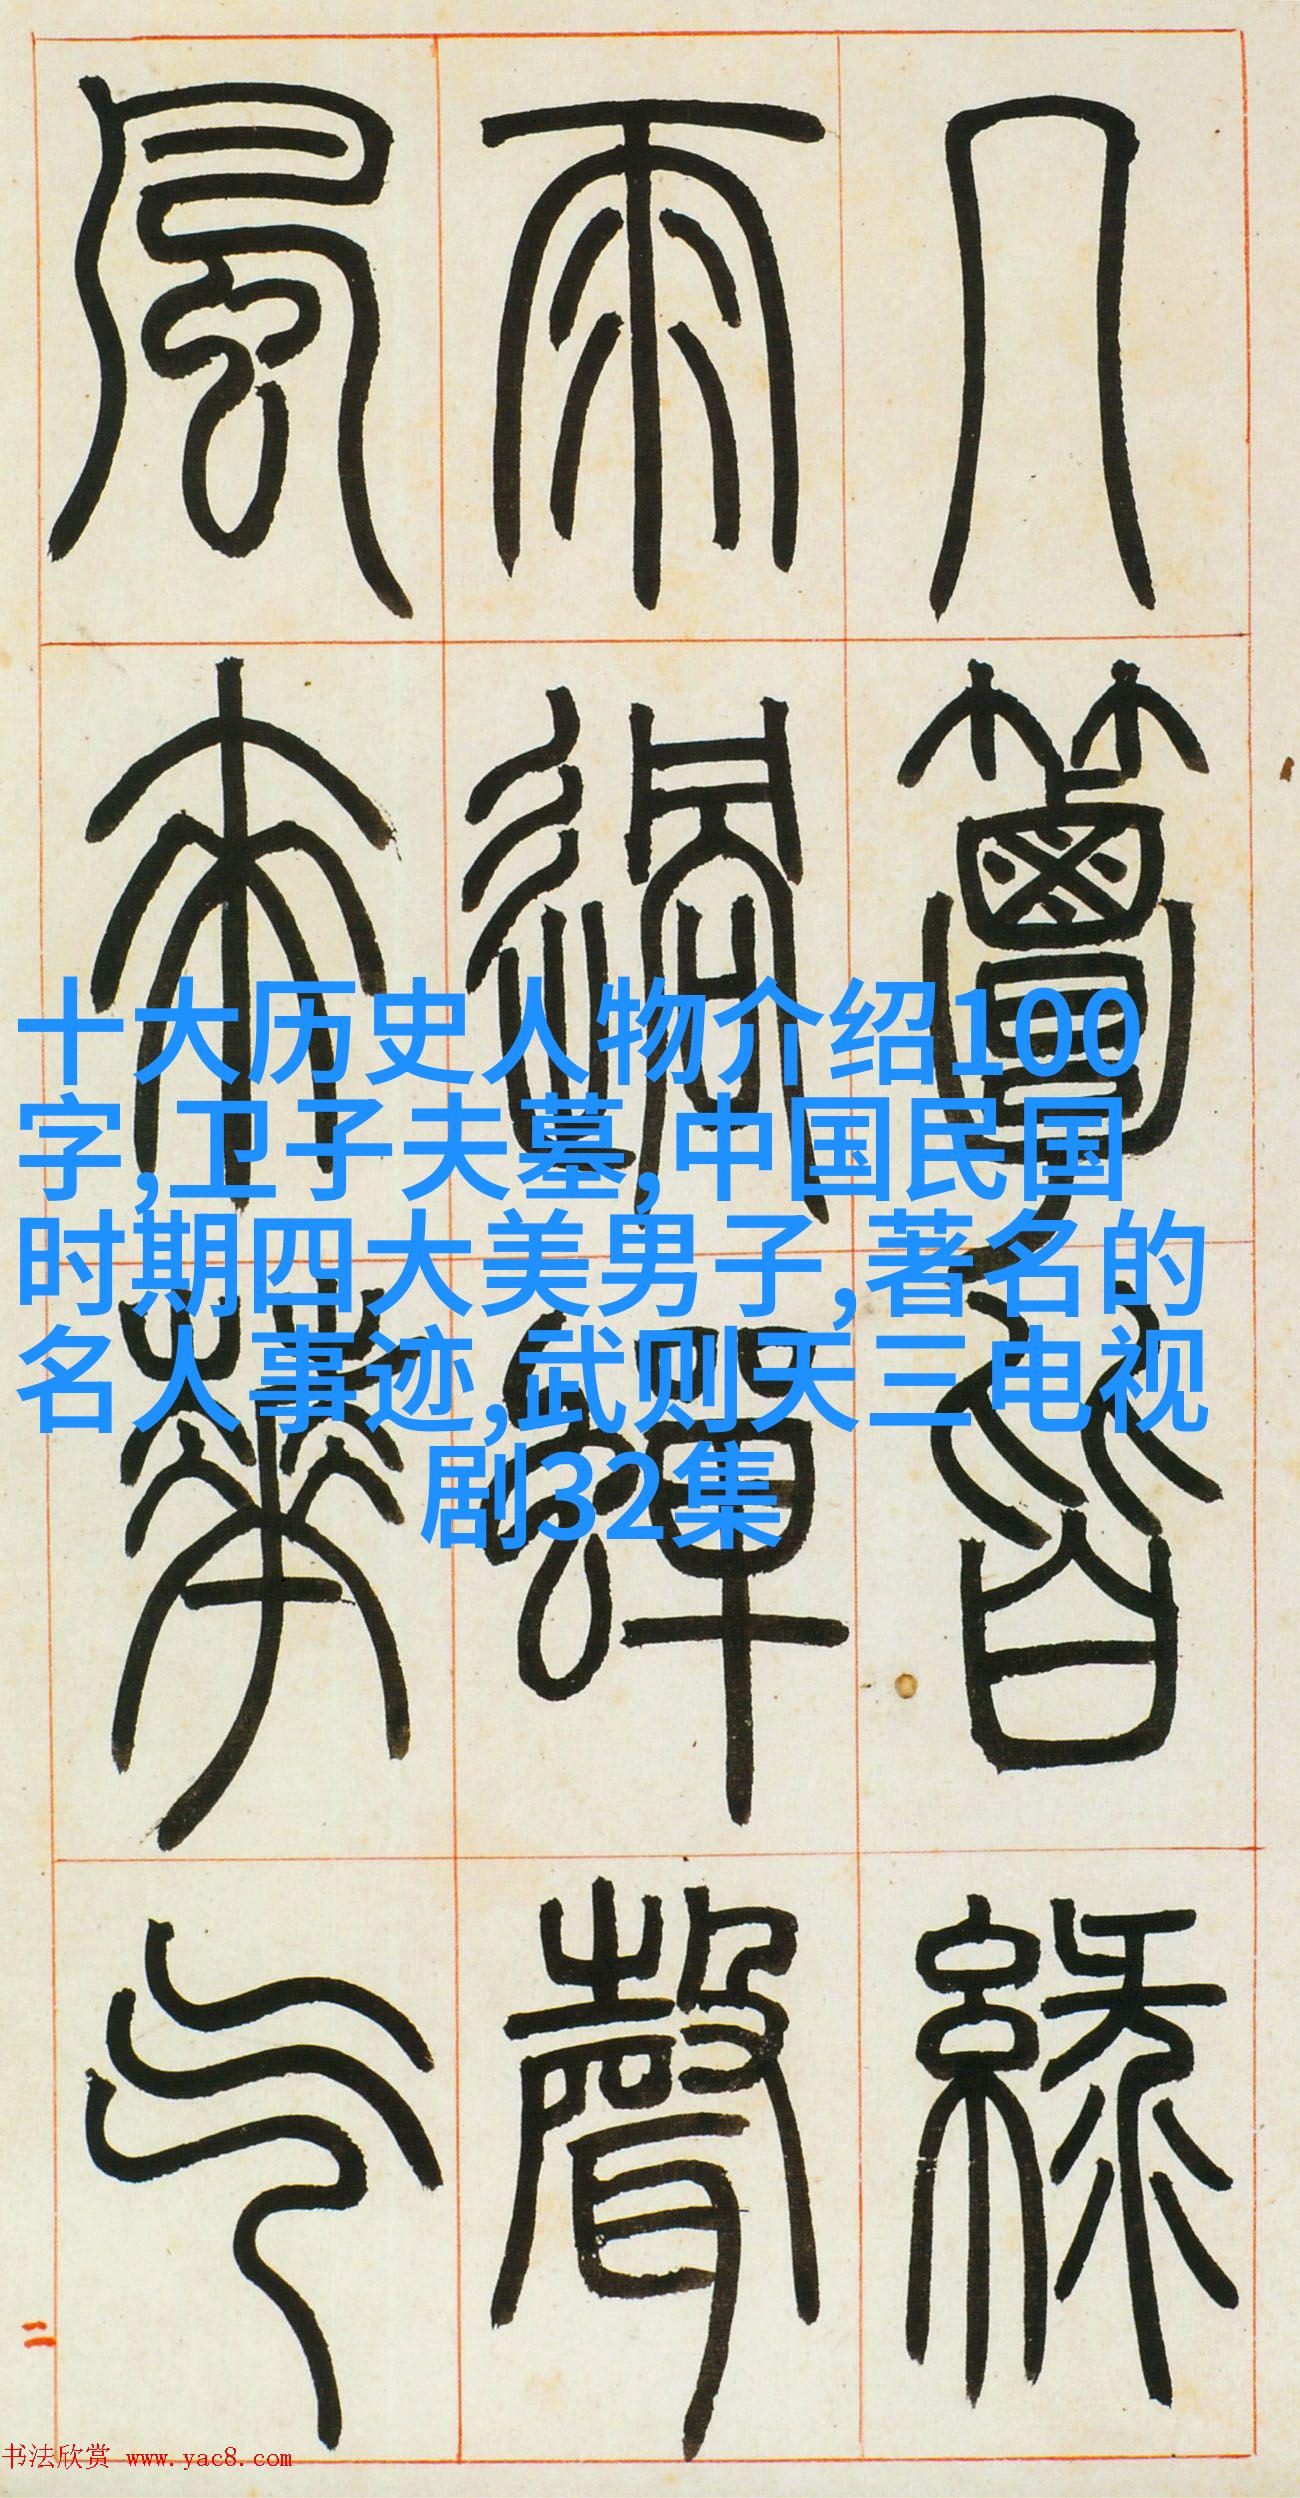 几簟皆綠
雨過蟬聲
風來華气
十大历史人物介绍100
字,卫子夫墓,中国民国
时期四大美男子,著名的
名人事迹,武则天三电视
剧32集
二
书法欣赏 www.yac8.com